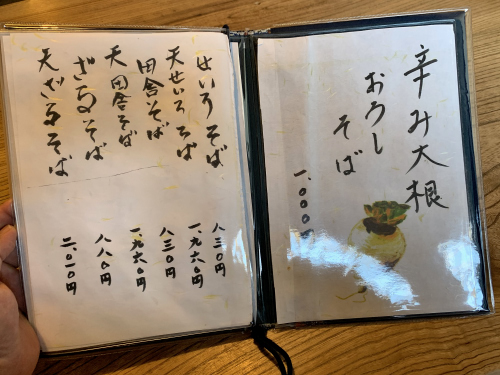 辛み大根
おろし
そば
一、〇〇〇
せいろそば
天せいろそば
田舎そば
天田舎そば
ざるそば
天ざるそば
八三〇円
一、九六〇円
八三〇円
一、九六〇円
八八〇円
二、〇一〇円